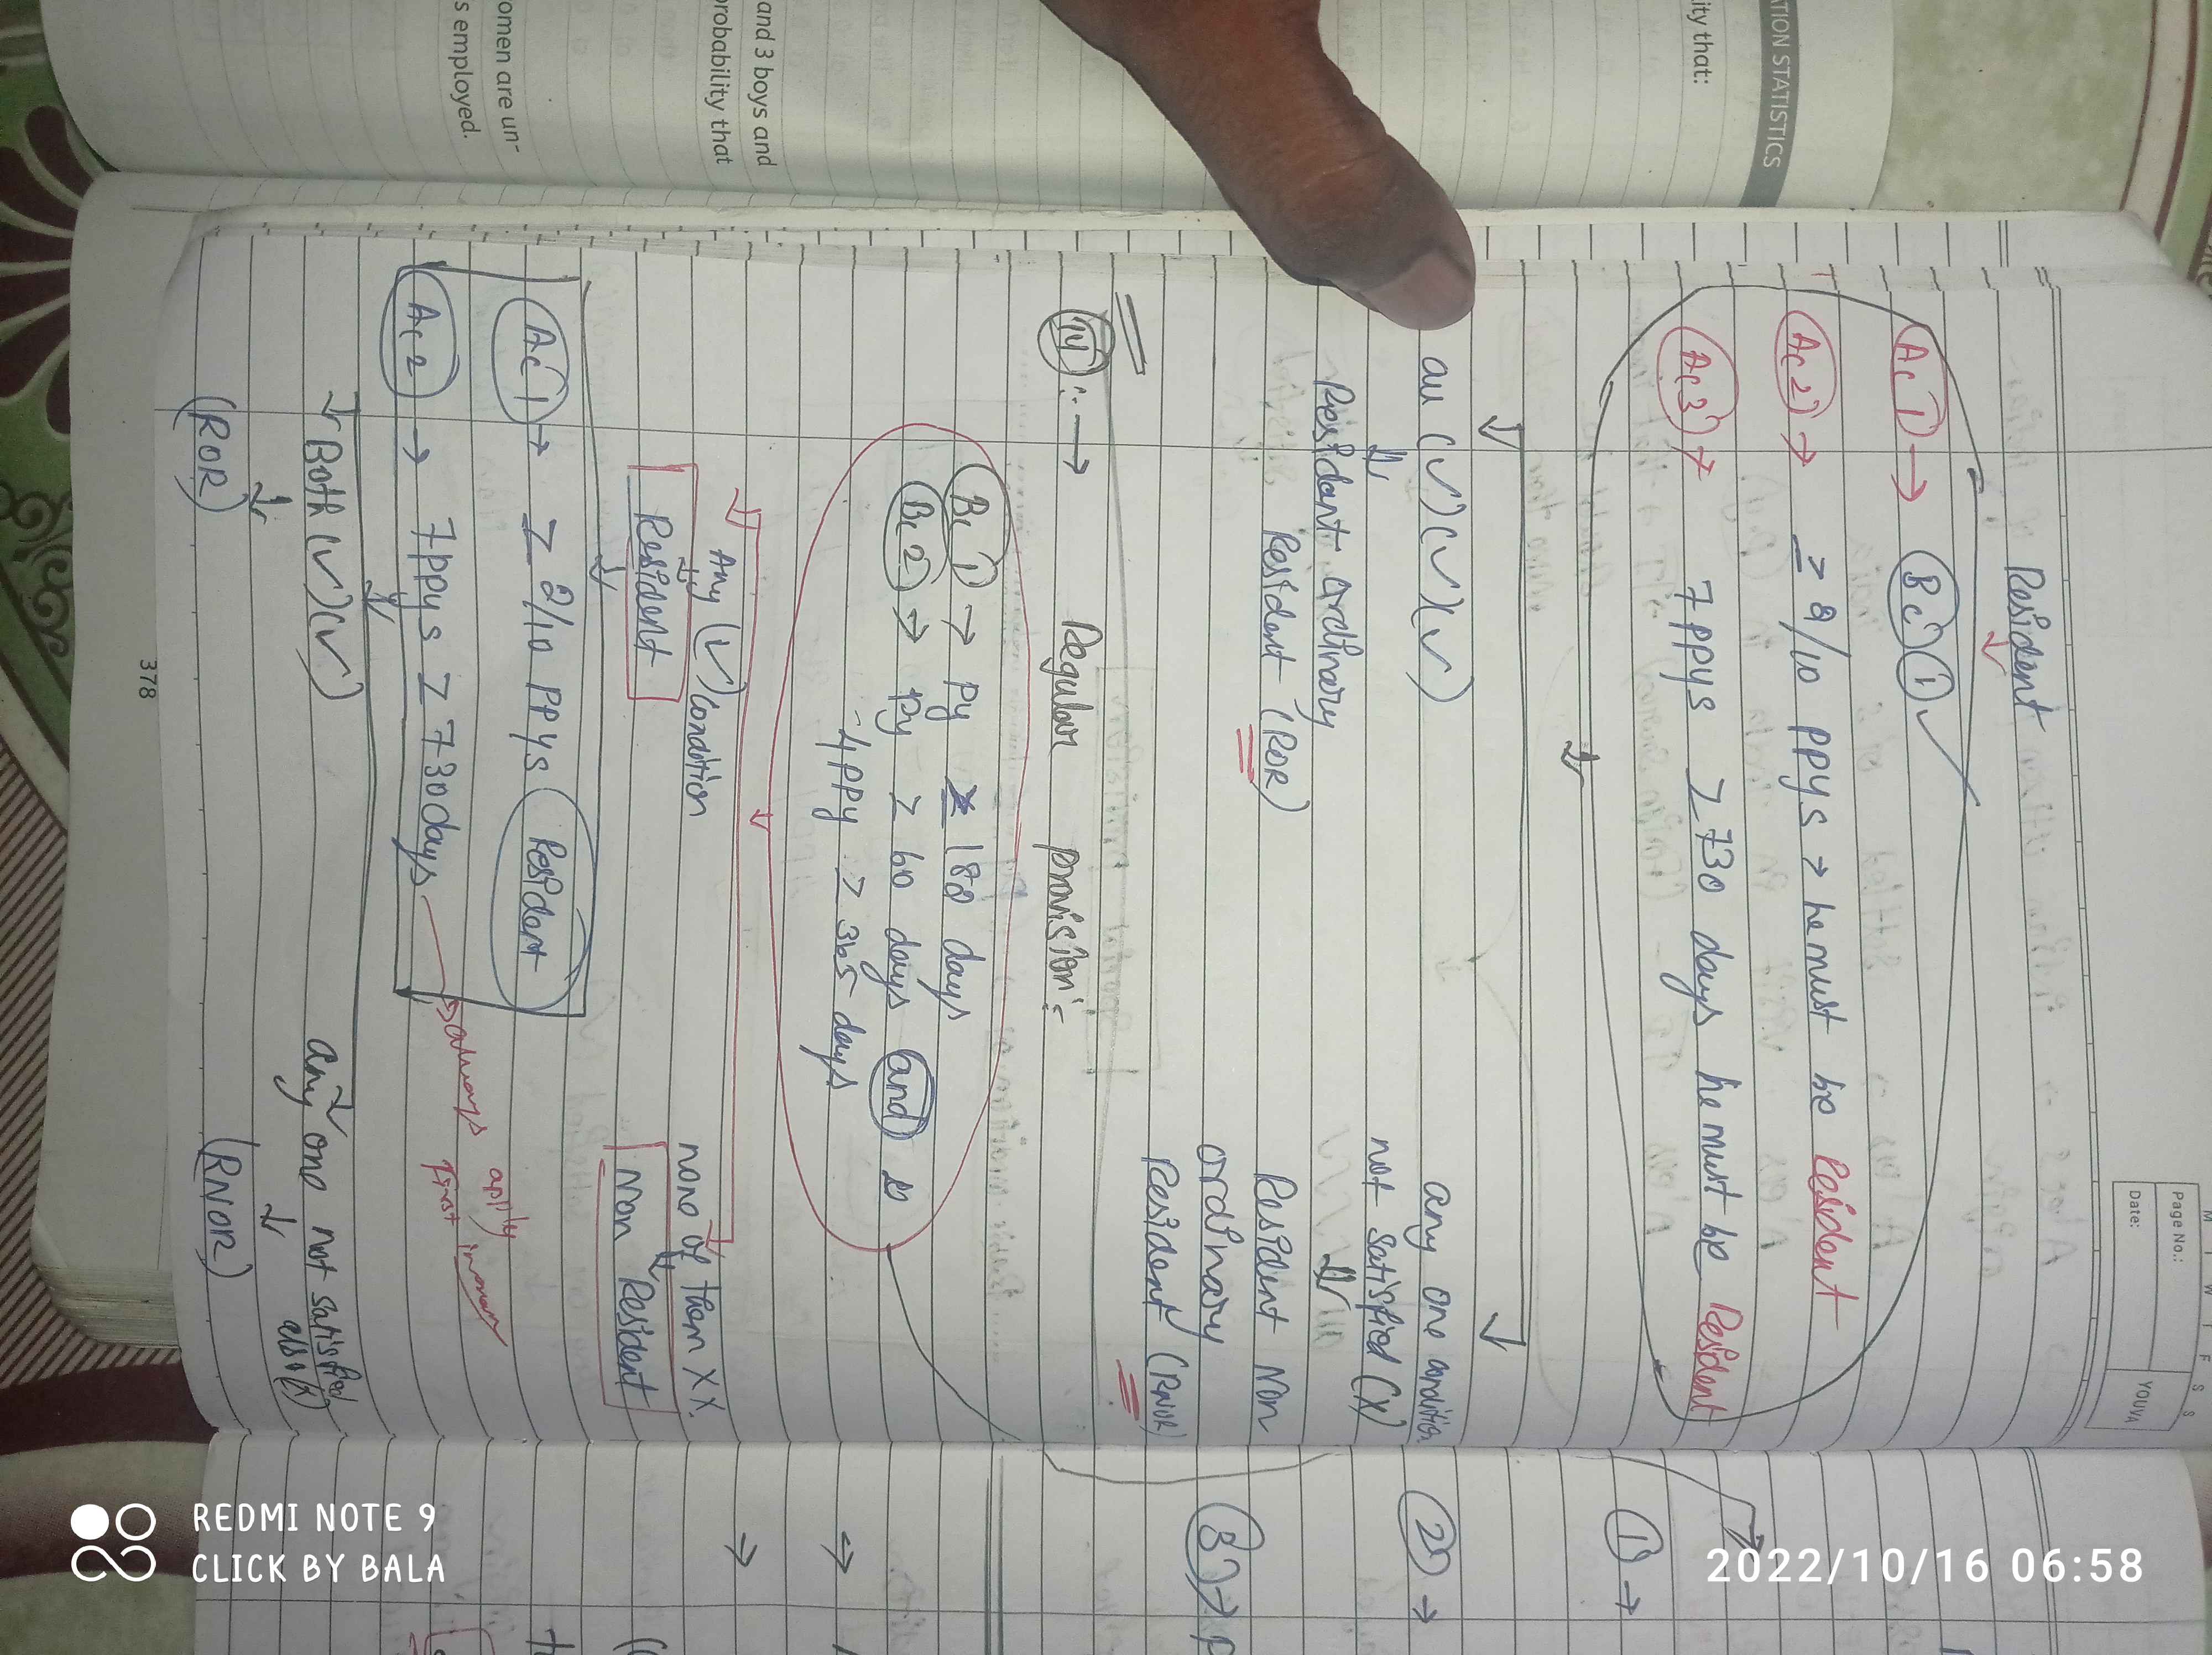 Page No.:
Date:
YOUVA
Resident
Ac 1 → Bc 1 ✓
Ac 2 → ≥ 2/10 PPYs → he must be Resident
Ac 3 → 7 PPYs ≥ 730 days he must be Resident
all (✓)(✓)(✓)
any one condition
not satisfied (X)
Resident ordinary
Resident (ROR)
Resident Non
ordinary
Resident (RNOR)
Regular provision :-
Bc 1 → PY ≥ 180 days
Bc 2 → PY ≥ 60 days and
4 PPY ≥ 365 days
Any (✓) condition
none of them XX
Resident
Non Resident
Ac 1 → ≥ 2/10 PPYs Resident
Ac 2 → 7 PPYs ≥ 730 days
always apply
first
Both (✓)(✓)
any one not satisfied
(ROR)
(RNOR)
378
TION STATISTICS
ity that:
and 3 boys and
probability that
omen are un-
s employed.
1 →
2 →
3 →
REDMI NOTE 9
CLICK BY BALA
2022/10/16 06:58